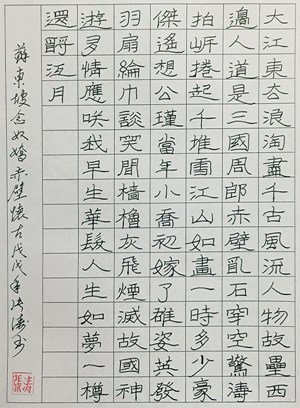 大江東去浪淘盡千古風流人物故壘西
邊人道是三國周郎赤壁亂石穿空驚濤
拍岸捲起千堆雪江山如畫一時多少豪
傑遙想公瑾當年小喬初嫁了雄姿英發
羽扇綸巾談笑間檣櫓灰飛煙滅故國神
遊多情應咲我早生華髮人生如夢一樽
還酹江月
蘇東坡念奴嬌赤壁懷古戊戌年